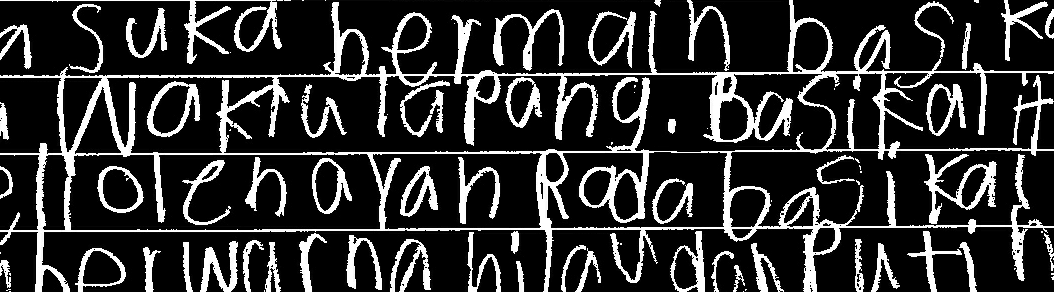 a suka bermain basika
a Waktu lapang. Basikal it
eli oleh ayah Rada basikal
berwarna hijau dan Putih